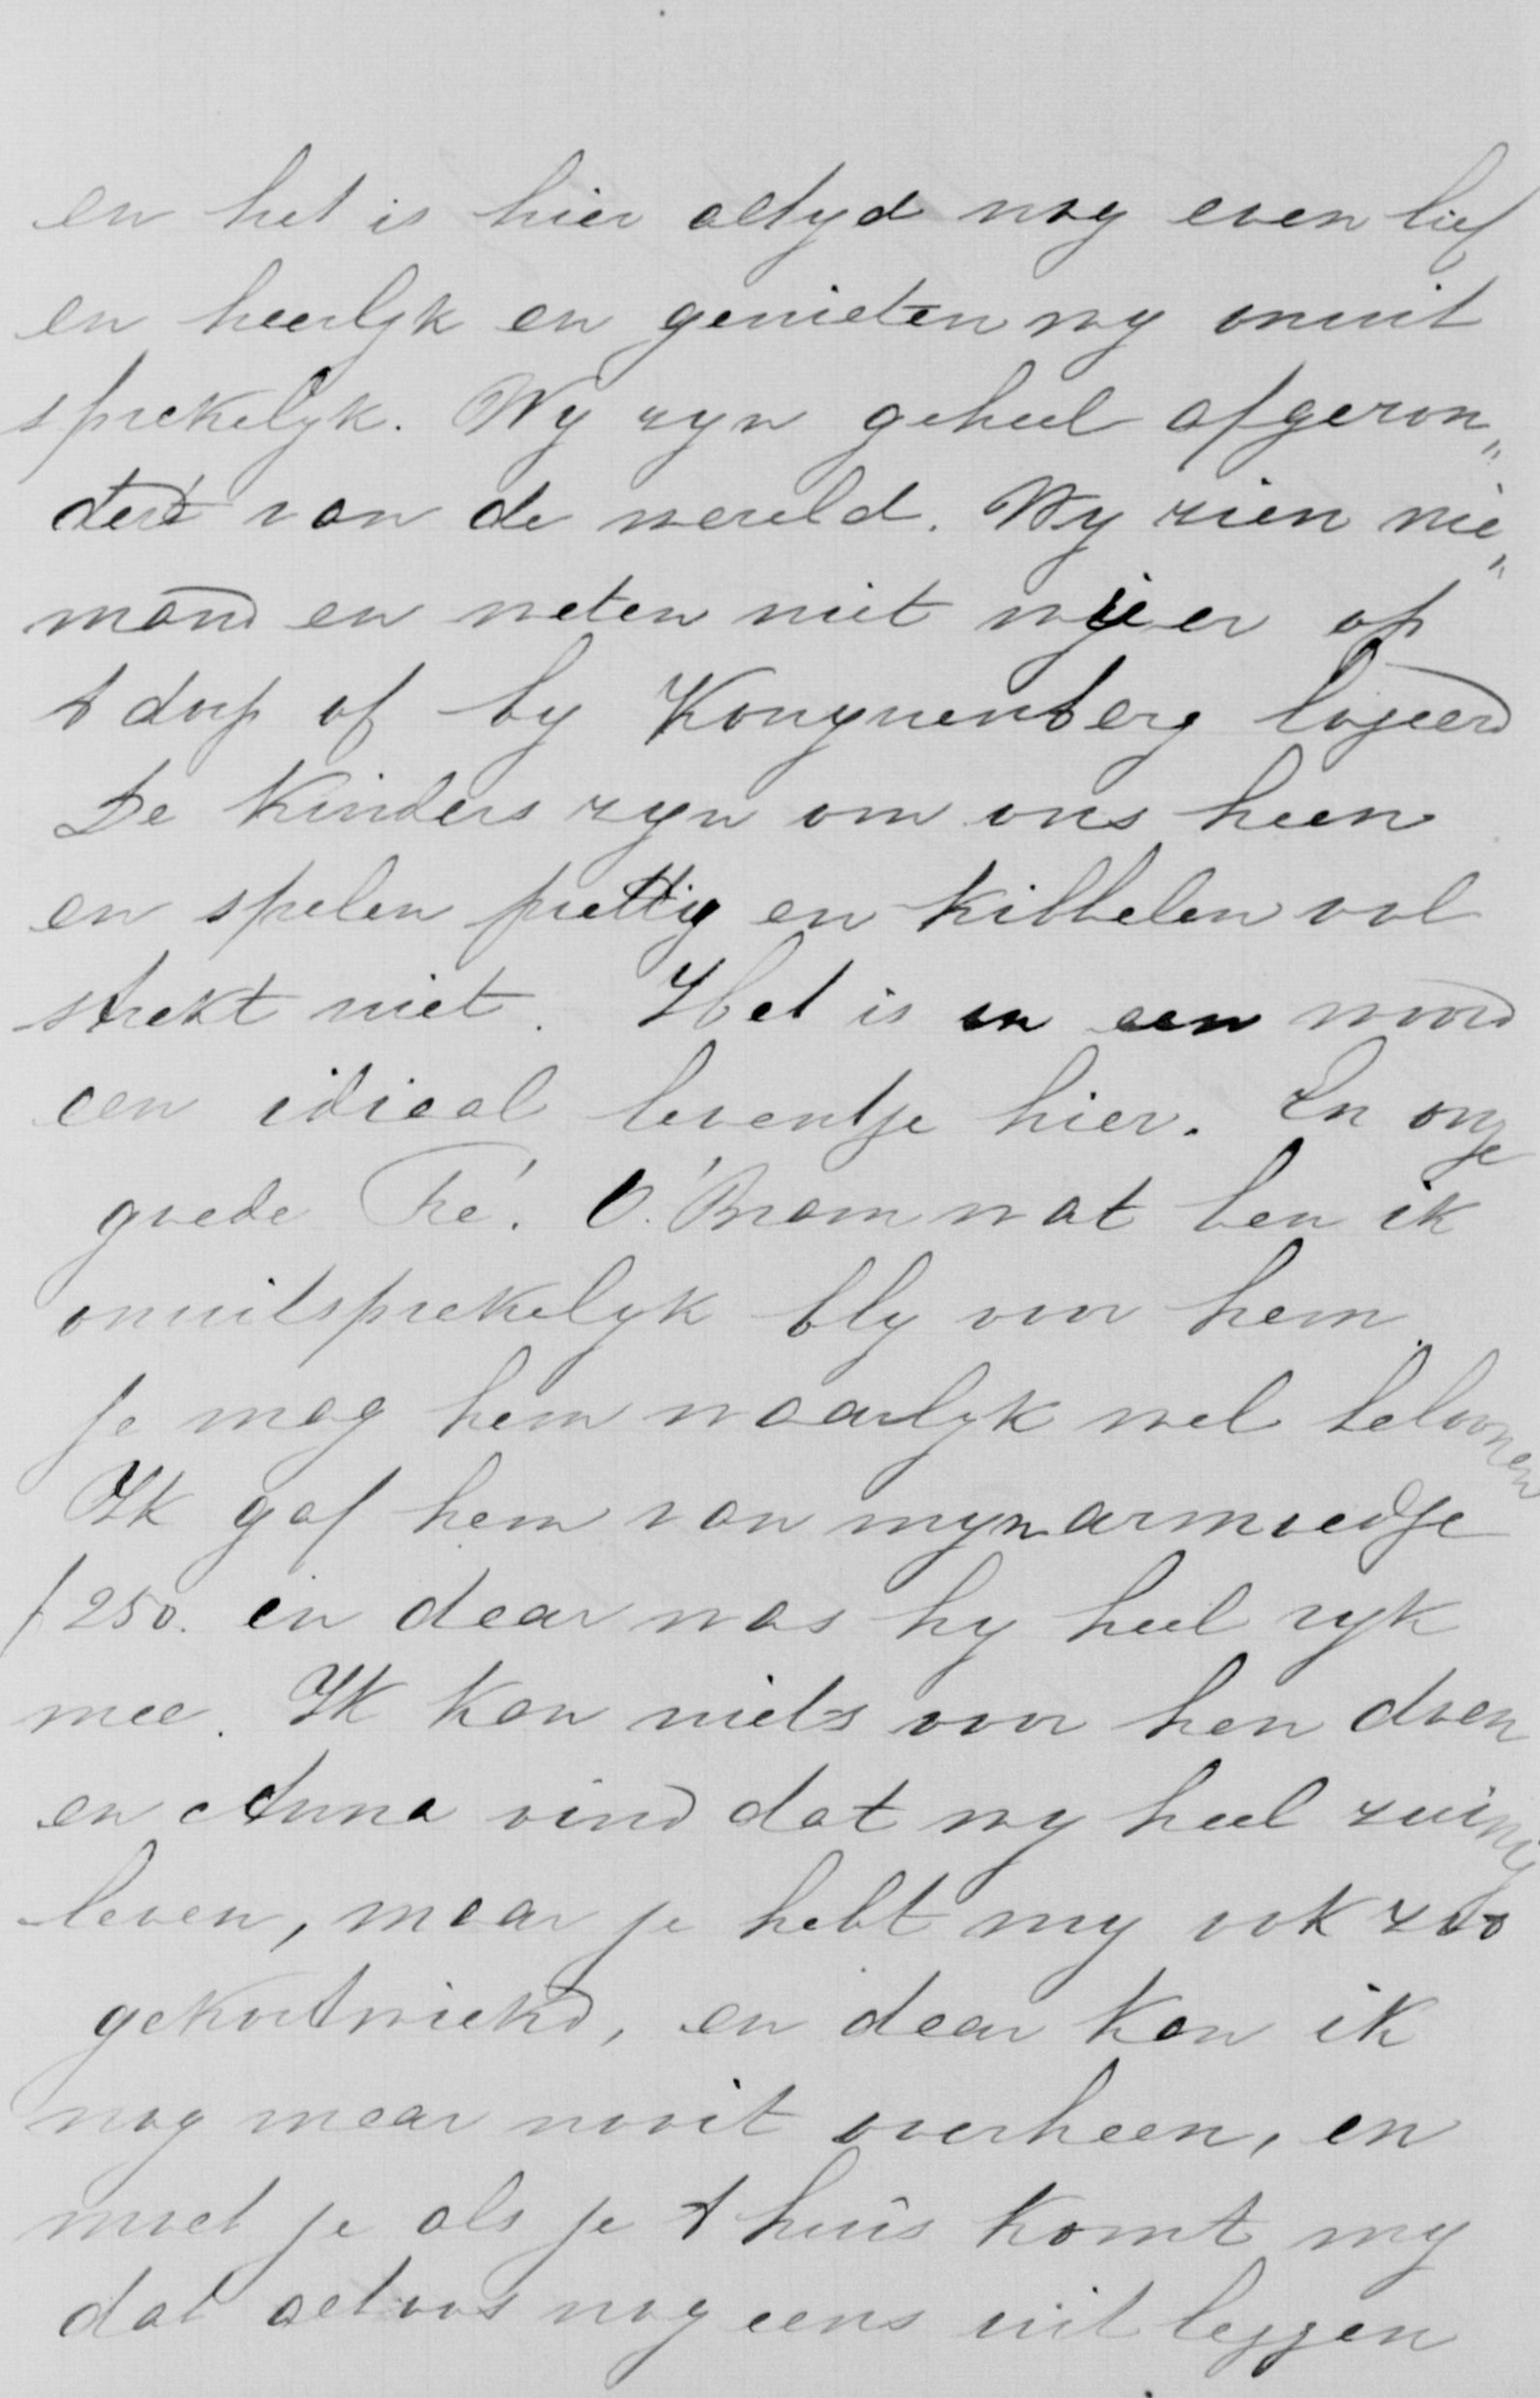 en het is hier altyd nog even lief
en heerlyk en genieten wy onuit
sprekelyk. Wy zyn geheel afgezon„
derd van de wereld. Wy zien nie„
mand en weten niet wie er op
t dorp of by Konynenberg logeerd
De Kinders zyn om ons heen
en spelen prettig en kibbelen vol
strekt niet. Het is in een woord
een ideaal leventje hier. En onze
goede Fré. O. Bram wat ben ik
onuitsprekelyk bly voor hem.
Je mag hem waarlyk wel beloonen
Ik gaf hem van myn armoedje
f 250. en daar was hy heel ryk
mee. Ik kan niets voor hen doen
en Anna vind dat wy heel zuinig
leven, maar je hebt my ook zoo
gekortwiekd, en daar kan ik
nog maar nooit overheen, en
moet je als je t huis komt my
dat altoos nog eens uit leggen